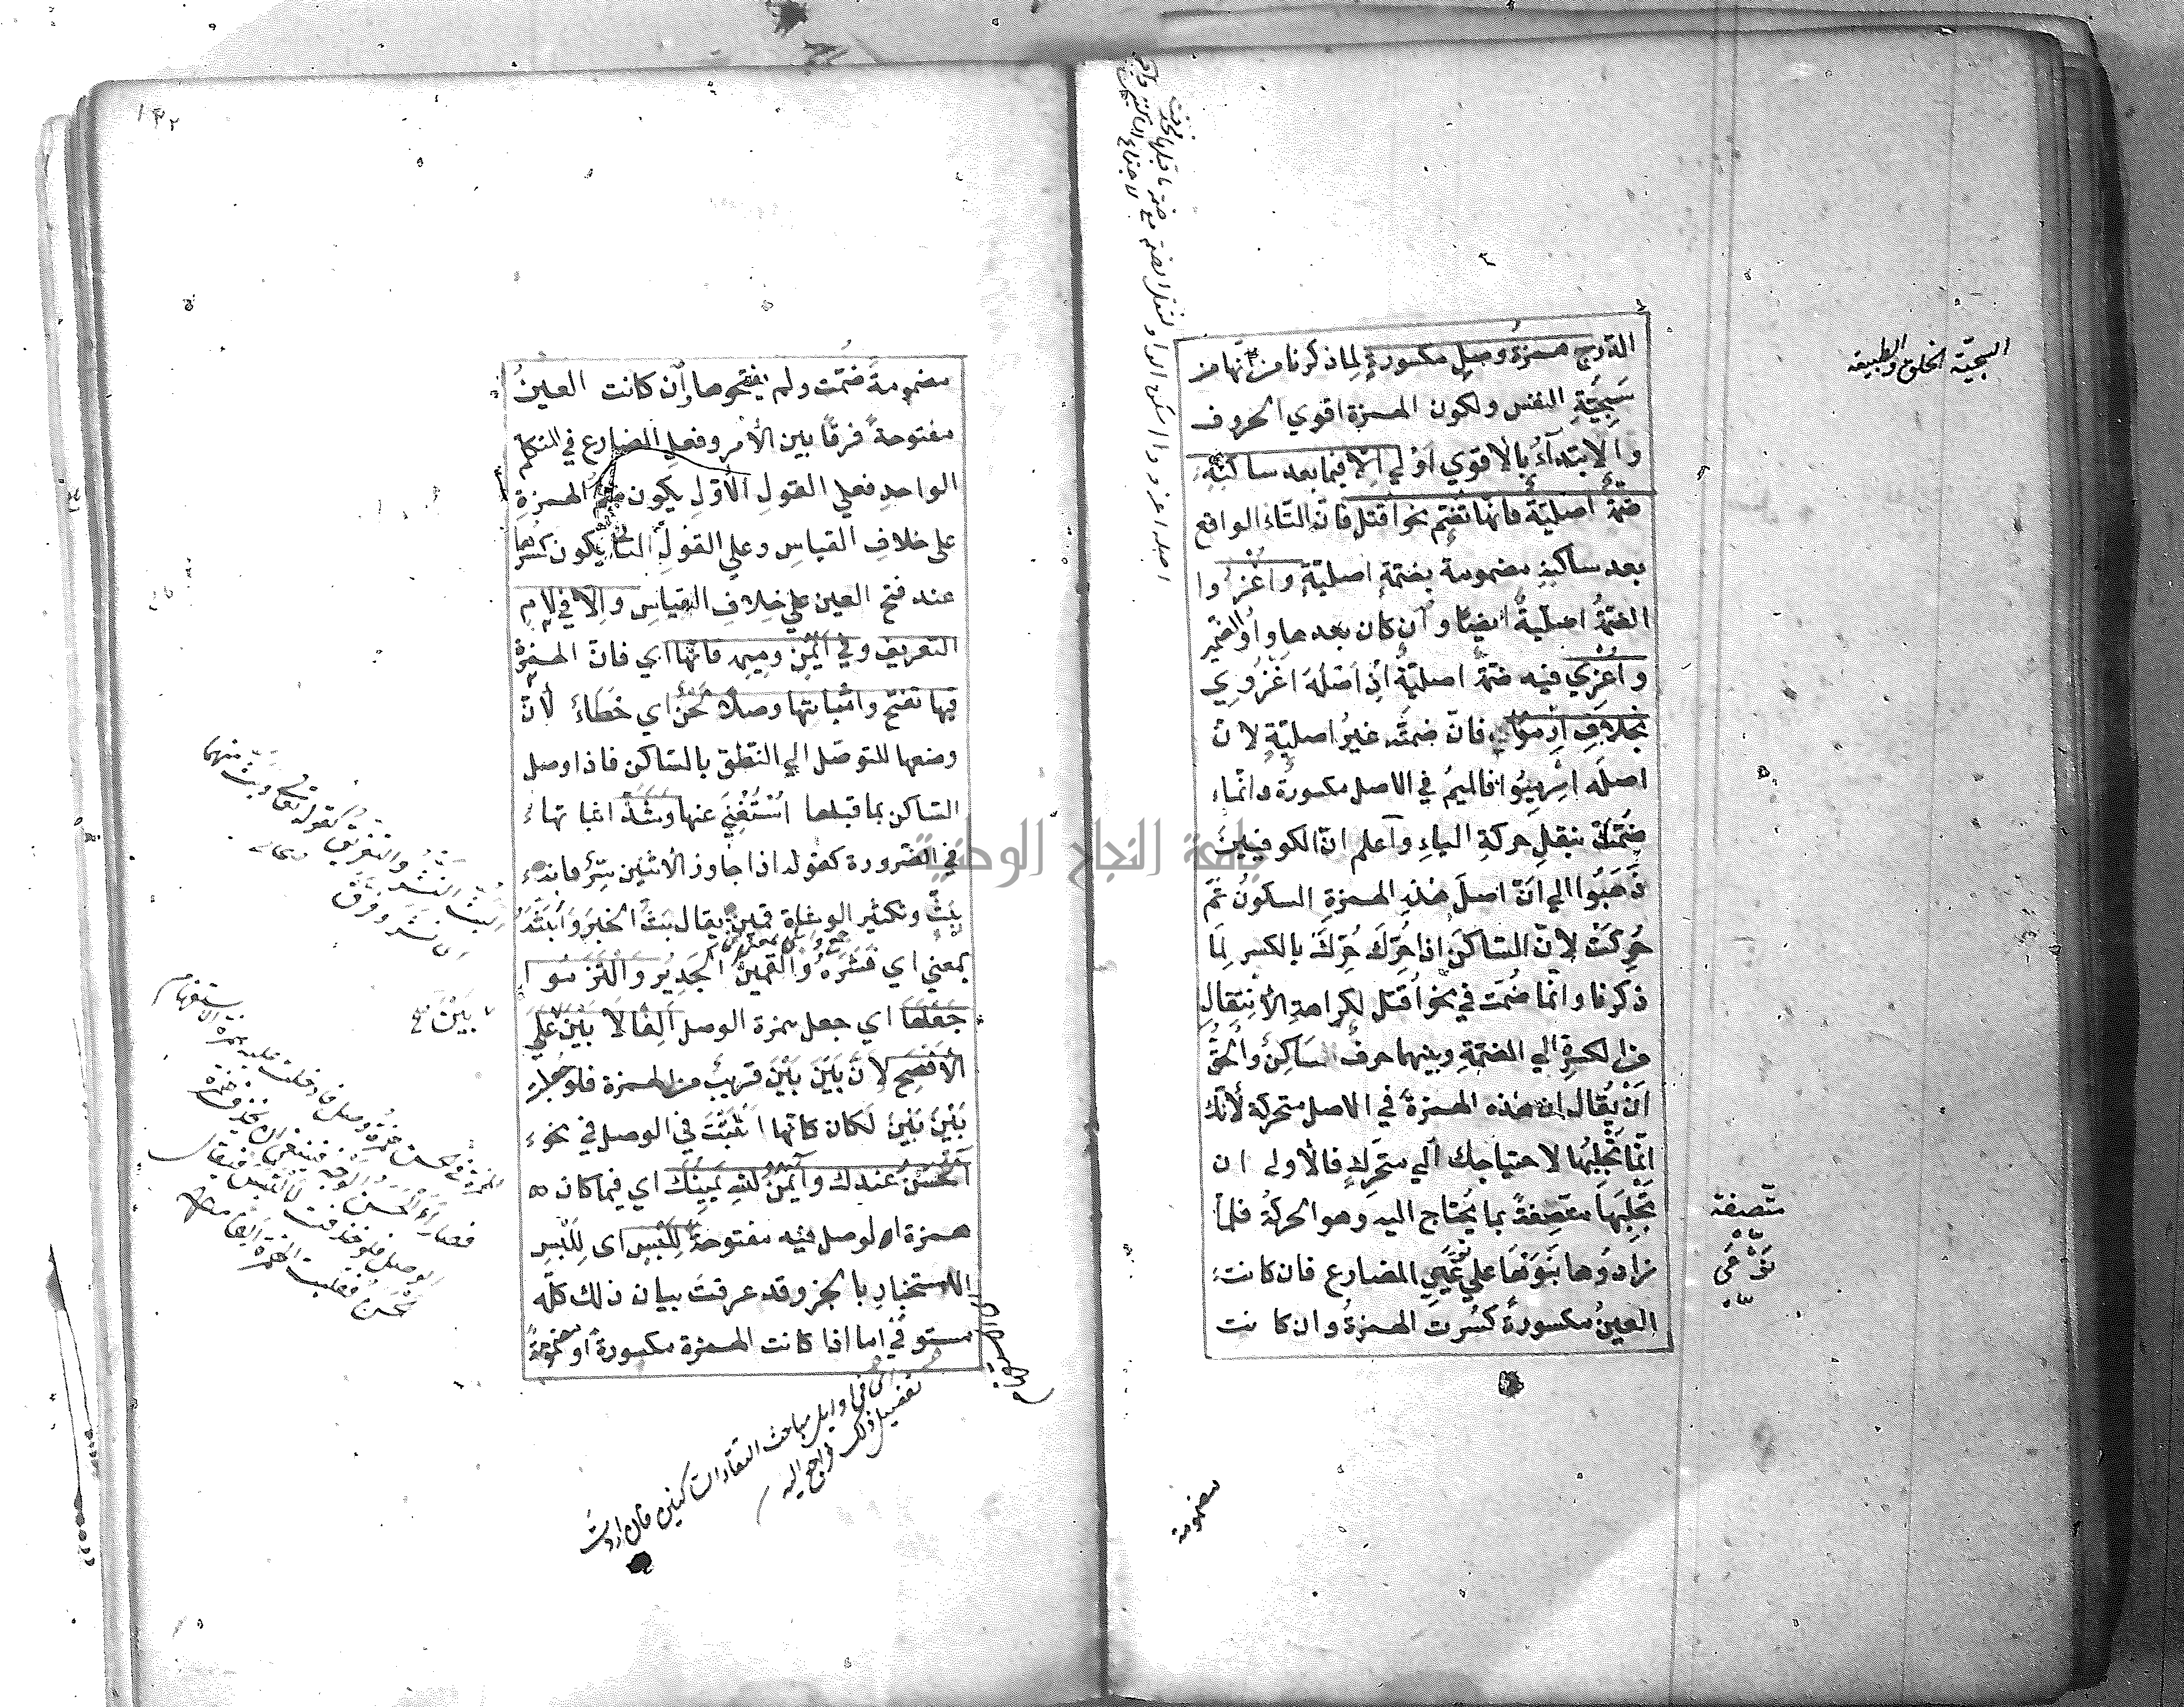 الدرج همزة وصل مكسورة لما ذكرنا من أنها من
سجية النفس ولكون الهمزة اقوي الحروف
والابتدآء بالأقوي أولي إلا فيما بعد ساكنه
ضمة أصلية فانها تضم نحو اقتل فان التاء الواقع
بعد ساكنه مضمومة بضمة اصلية واغزوا
الضمة اصلية ايضا وان كان بعدها واو الضمير
واغزي فيه ضمة اصلية اذ اصله اغزوي
بخلاف ارموا فان ضمته غير اصلية لان
اصله ارميوا فالميم في الاصل مكسورة وانما
ضمت بنقل حركة الياء واعلم ان الكوفيين
ذهبوا الي ان اصل هذه الهمزة السكون ثم
حركت لان الساكن اذا حرك حرك بالكسر لما
ذكرنا وانما ضمت في نحو اقتل لكراهة الانتقال
من الكسرة الي الضمة وبينهما حرف الساكن والحق
ان يقال ان هذه الهمزة في الاصل متحركة لأنك
انما تجلبها لاحتياجك الي متحرك فالأولى ان
تجلبها متصفة بما يحتاج اليه وهو الحركة فلما
زادوها بنوها علي عين المضارع فان كانت
العين مكسورة كسرت الهمزة وان كانت
مضمومة
السجية الخلق والطبيعة
متصفة
اصله اغزووا اسكن الواو لثقل الضمة مع ضمة ما قبلها فحذفت
١٣٢
مضمومة ضمت ولم يفتحوها وان كانت العين
مفتوحة فرقا بين الأمر وفعل المضارع في التكلم
الواحد فعلي القول الأول يكون ضم الهمزة
على خلاف القياس وعلي القول الثاني يكون كسرها
عند فتح العين علي خلاف القياس وإلا في لام
التعريف وفي ايمن وميم فانها اي فان الهمزة
فيها تفتح واثباتها وصلا لحن اي خطاء لأن
وضعها للتوصل الي النطق بالساكن فاذا وصل
الساكن بما قبلها استغني عنها وشذ اثباتها
في الضرورة كقوله اذا جاوز الاثنين سر فانه
ببث وتكثير الوشاة قمين يقال بث الخبر وأبثه
بمعني اي نشره والقمين الجدير والتزموا
جعلها اي جعل همزة الوصل الفا لا بين علي
الأفصح لان بين بين قريب من الهمزة فلو جعل
بين بين لكان كانها اثبتت في الوصل في نحو
آلحسن عندك وآيمن الله يمينك اي فيما كان
همزة الوصل فيه مفتوحة للبس اى للبس
الاستخبار بالخبر وقد عرفت بيان ذلك كله
مستوفي اما اذا كانت الهمزة مكسورة او مضمومة
البث النشر والتفريق كقوله تعالى وبث منهما
اى نشر وفرق
بين صح
اى فى اوايل مباحث التقاء الساكنين فان اردت
تفصيل ذلك فراجع اليه
جامعة النجاح الوطنية